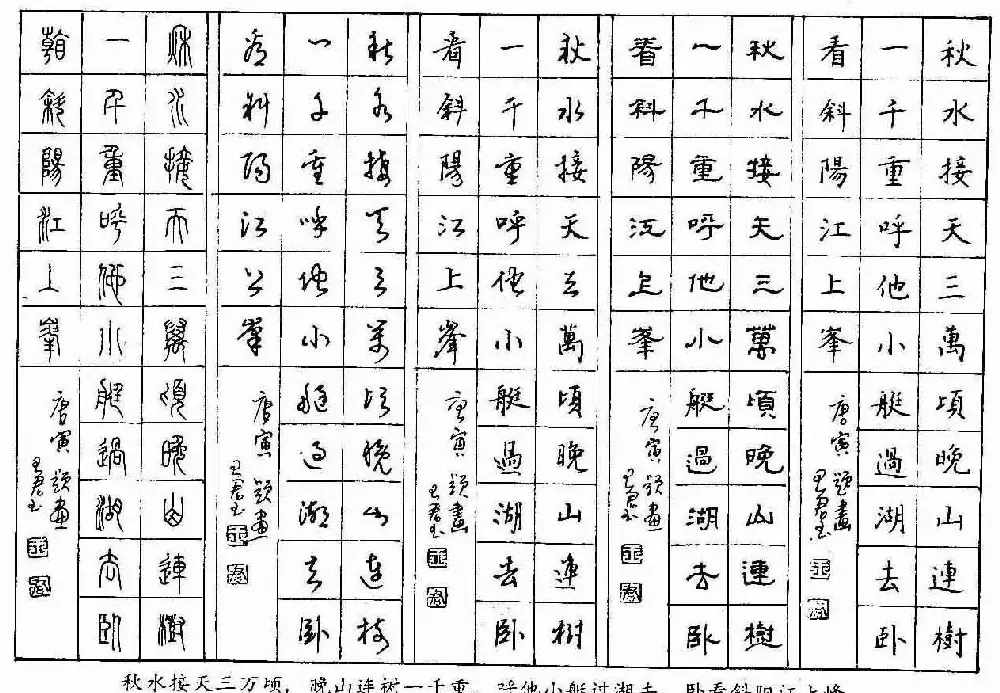 秋水接天三萬頃晚山連樹
一千重呼他小艇過湖去卧
看斜陽江上峯
唐寅題畫
秋水接天三萬頃晚山連樹
一千重呼他小艇過湖去卧
看斜陽江上峯
唐寅題畫
秋水接天三萬頃晚山連樹
一千重呼他小艇過湖去卧
看斜陽江上峯
唐寅題畫
秋水接天三萬頃晚山連樹
一千重呼他小艇過湖去卧
看斜陽江上峯
唐寅題畫
秋水接天三萬頃晚山連樹
一千重呼他小艇過湖去卧
看斜陽江上峯
唐寅題畫
秋水接天三万顷，晚山连树一千重。呼他小艇过湖去，卧看斜阳江上峰